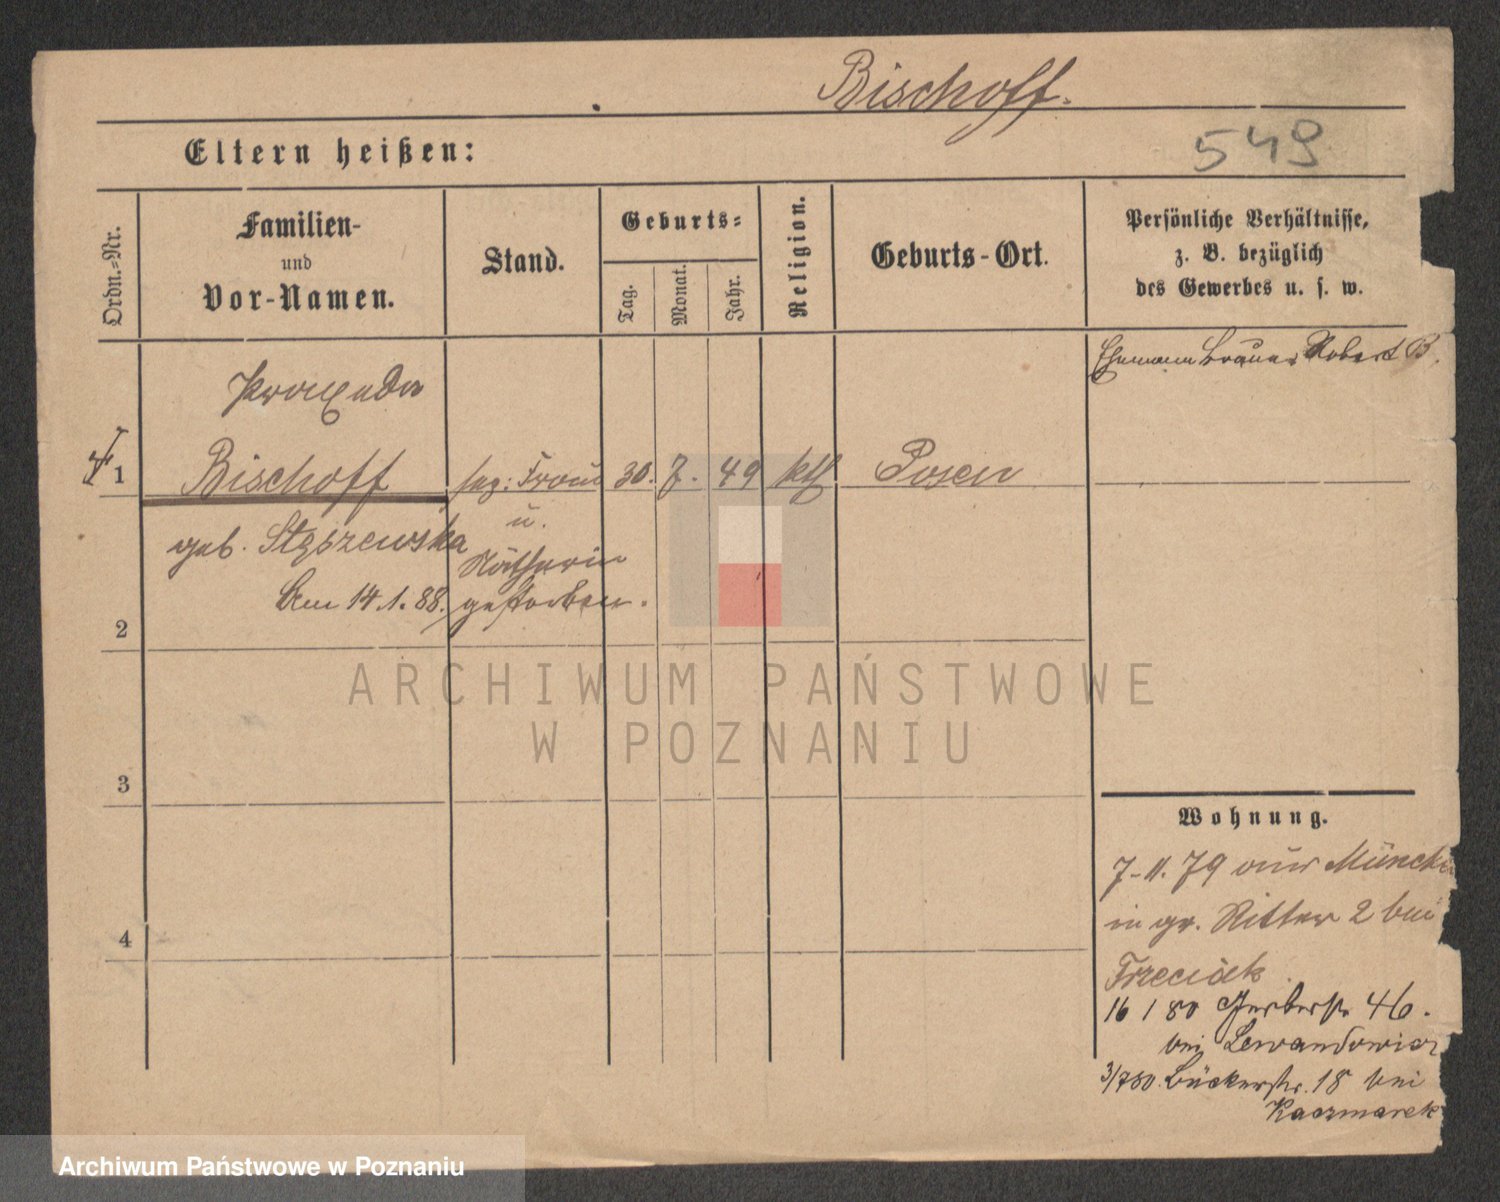 Bischoff.
549
Eltern heißen:
Ordn.-Nr.
Familien-
und
Vor-Namen.
Stand.
Geburts-
Tag.
Monat.
Jahr.
Religion.
Geburts-Ort.
Persönliche Verhältnisse,
z. B. bezüglich
des Gewerbes u. s. w.
Ehemann Brauer Robert B.
Praxeda
1 Bischoff sep: Frau 30. 7. 49 kth Posen
geb. Stęszewska u.
Nätherin
am 14.1.88. gestorben.
2
3
4
Wohnung.
7-11.79 aus München
in gr. Ritter 2 bei
Trzeciak
16 1 80 Gerberstr 46.
bei Lewandowicz
3/7 80. Bäckerstr. 18 bei
Kaczmarek
ARCHIWUM PAŃSTWOWE
W POZNANIU
Archiwum Państwowe w Poznaniu